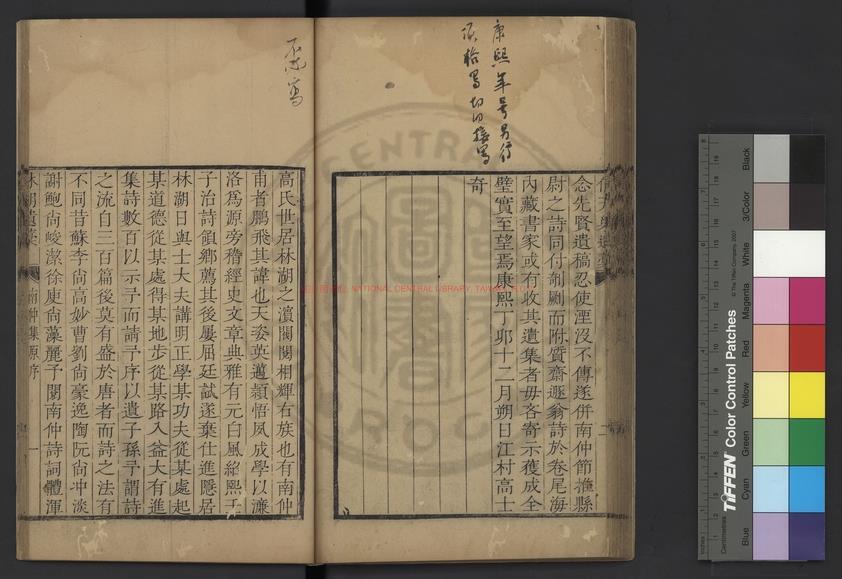 康熙年号另行
須抬寫切切接寫
念先賢遺稿忍使湮沒不傳遂併南仲節推縣
尉之詩同付剞劂而附質齋遯翁詩於卷尾海
內藏書家或有收其遺集者毋吝寄示獲成全
璧實至望焉康熙丁卯十二月朔日江村高士
奇
寫
高氏世居林湖之濵閥閱相輝右族也有南仲
甫者鵬飛其諱也天姿英邁穎悟夙成學以濂
洛爲源旁稽經史文章典雅有元白風紹熙壬
子治詩領鄉薦其後屢屈廷試遂棄仕進隱居
林湖日與士大夫講明正學某功夫從某處起
某道德從某處得某地步從某路入益大有進
集詩數百以示予而請予序以遺子孫予謂詩
之流自三百篇後莫有盛於唐者而詩之法有
不同昔蘇李尙高妙曹劉尙豪逸陶阮尙冲淡
謝鮑尙峻潔徐庾尙藻麗予閱南仲詩詞體渾
林湖遺稾
南仲集原序
一
NATIONAL CENTRAL LIBRARY, TAIWAN
NATIONAL CENTRAL LIBRARY
圖
TIFFEN Color Control Patches
© The Tiffen Company, 2007
Centimetres
Inches
Blue
Cyan
Green
Yellow
Red
Magenta
White
3/Color
Black